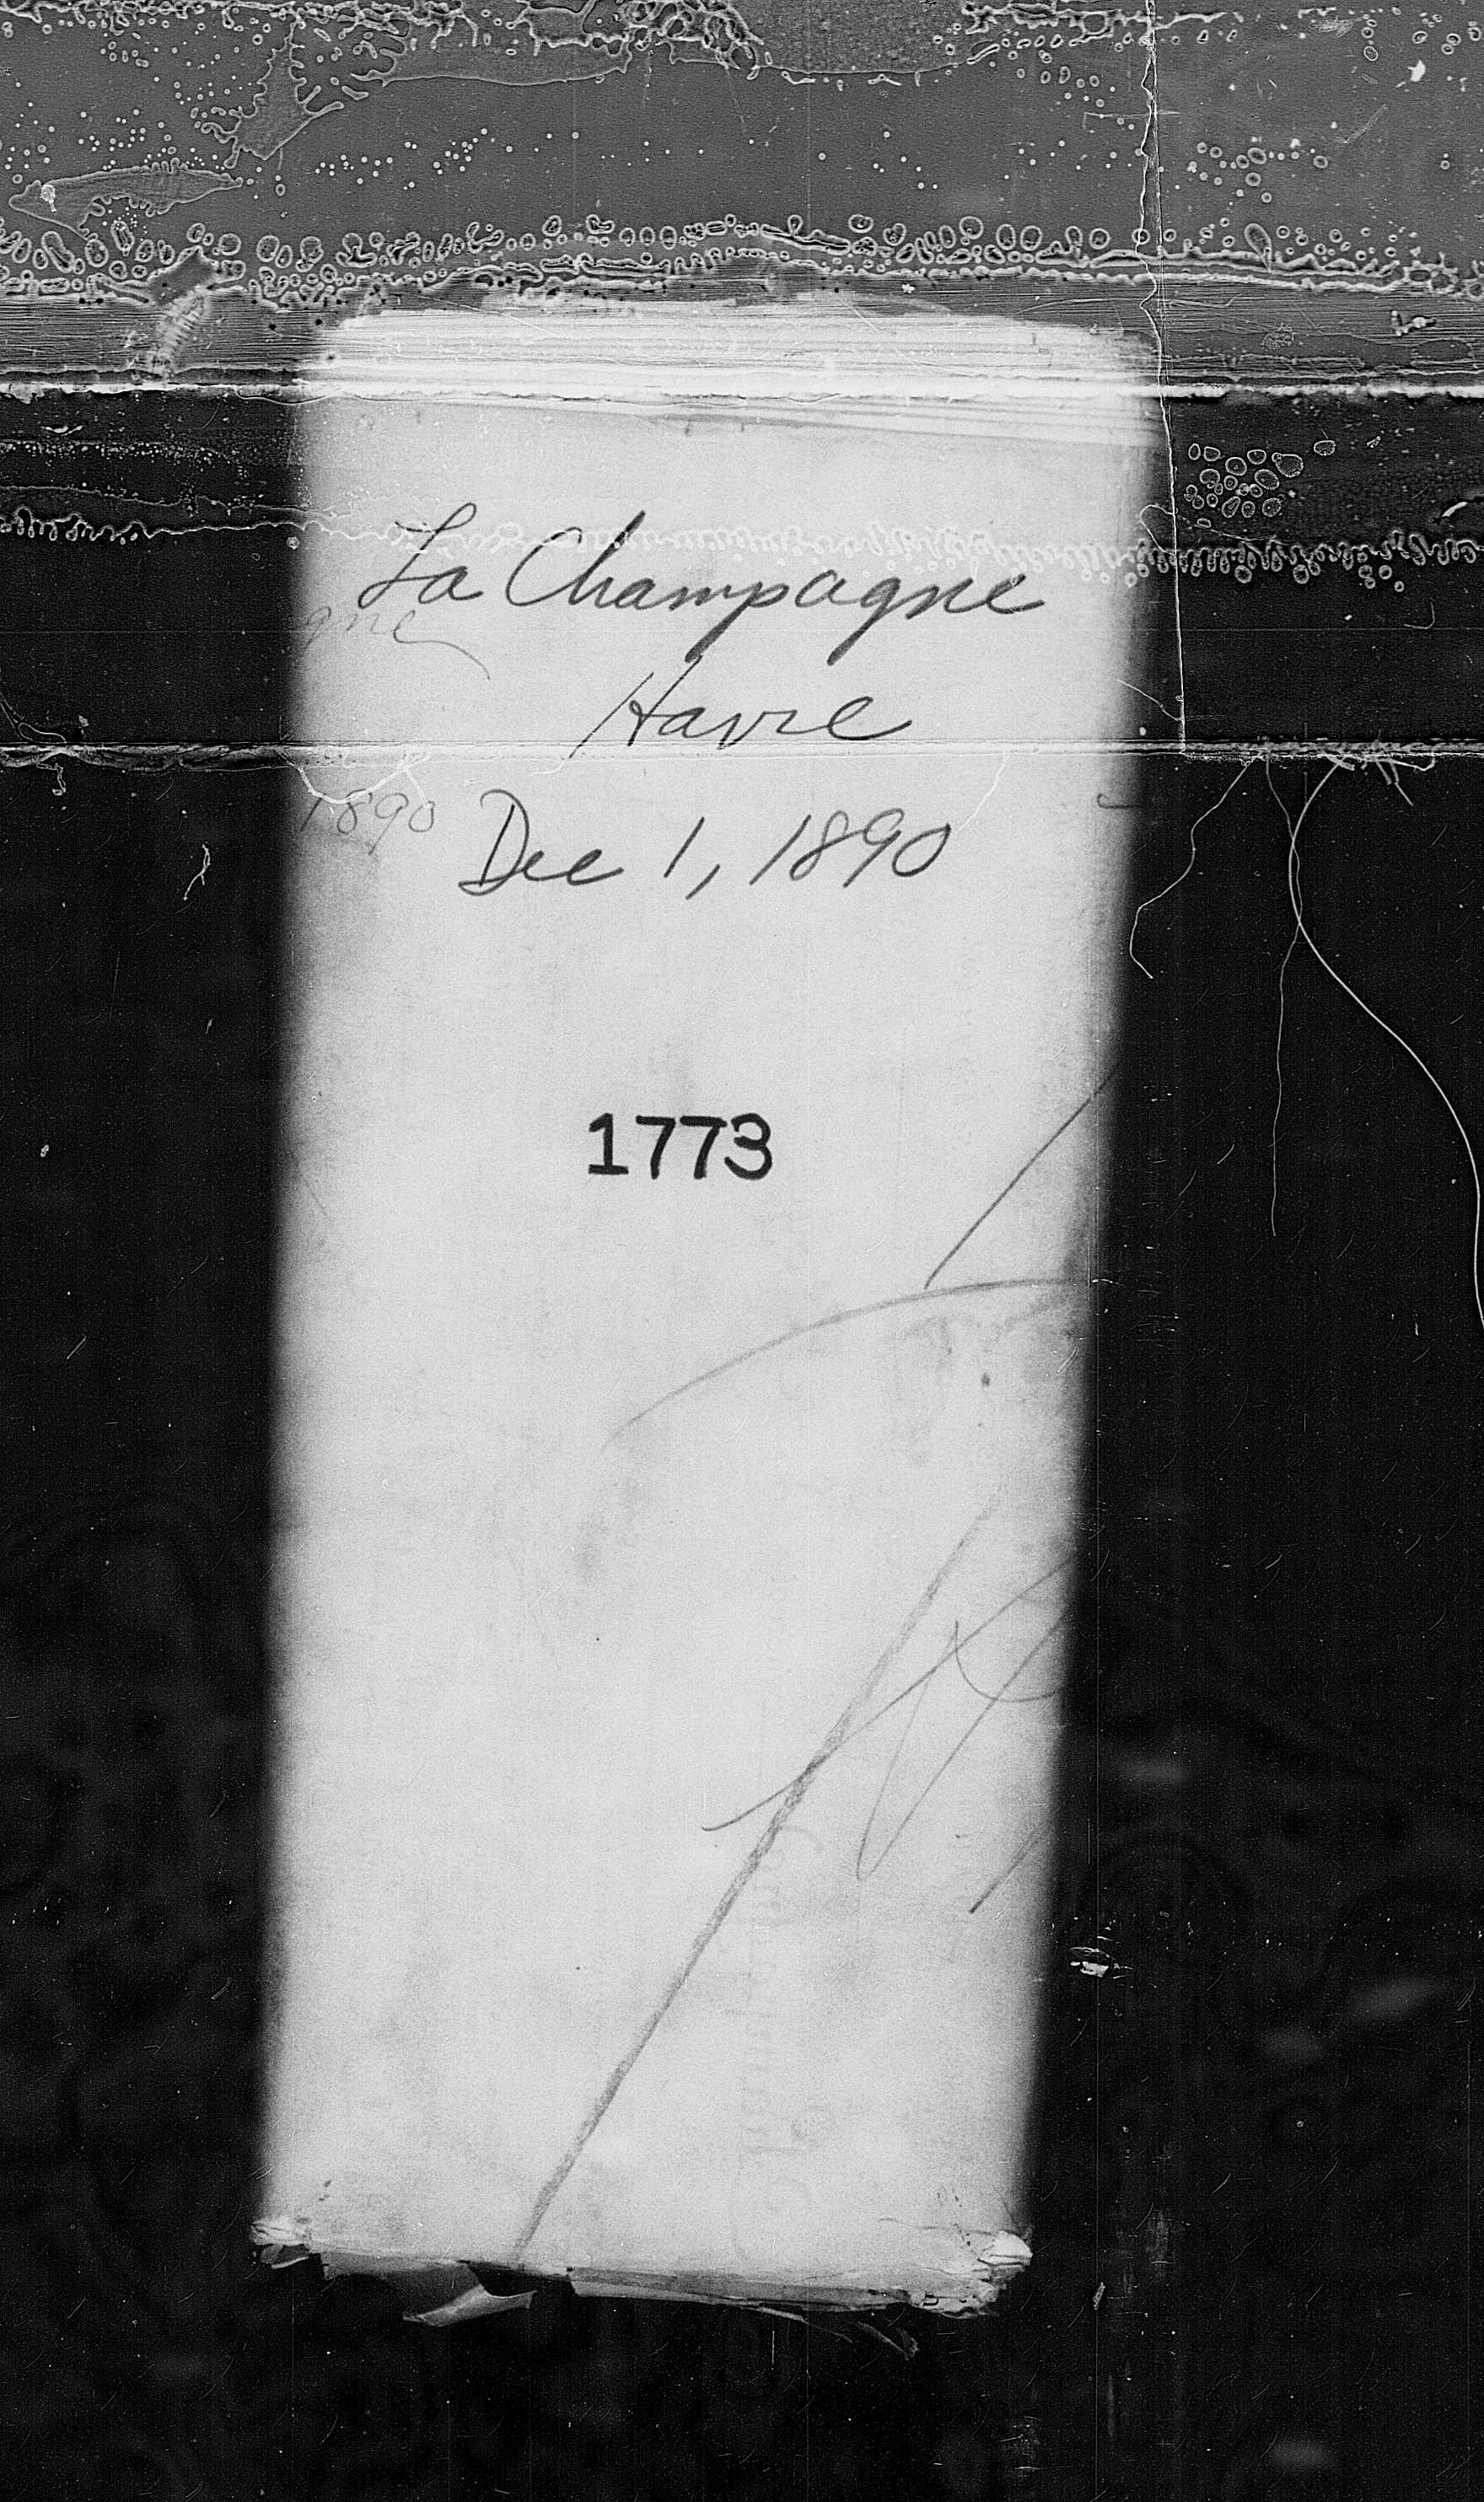 La Champagne
gne
Havre
1890
Dec 1, 1890
1773